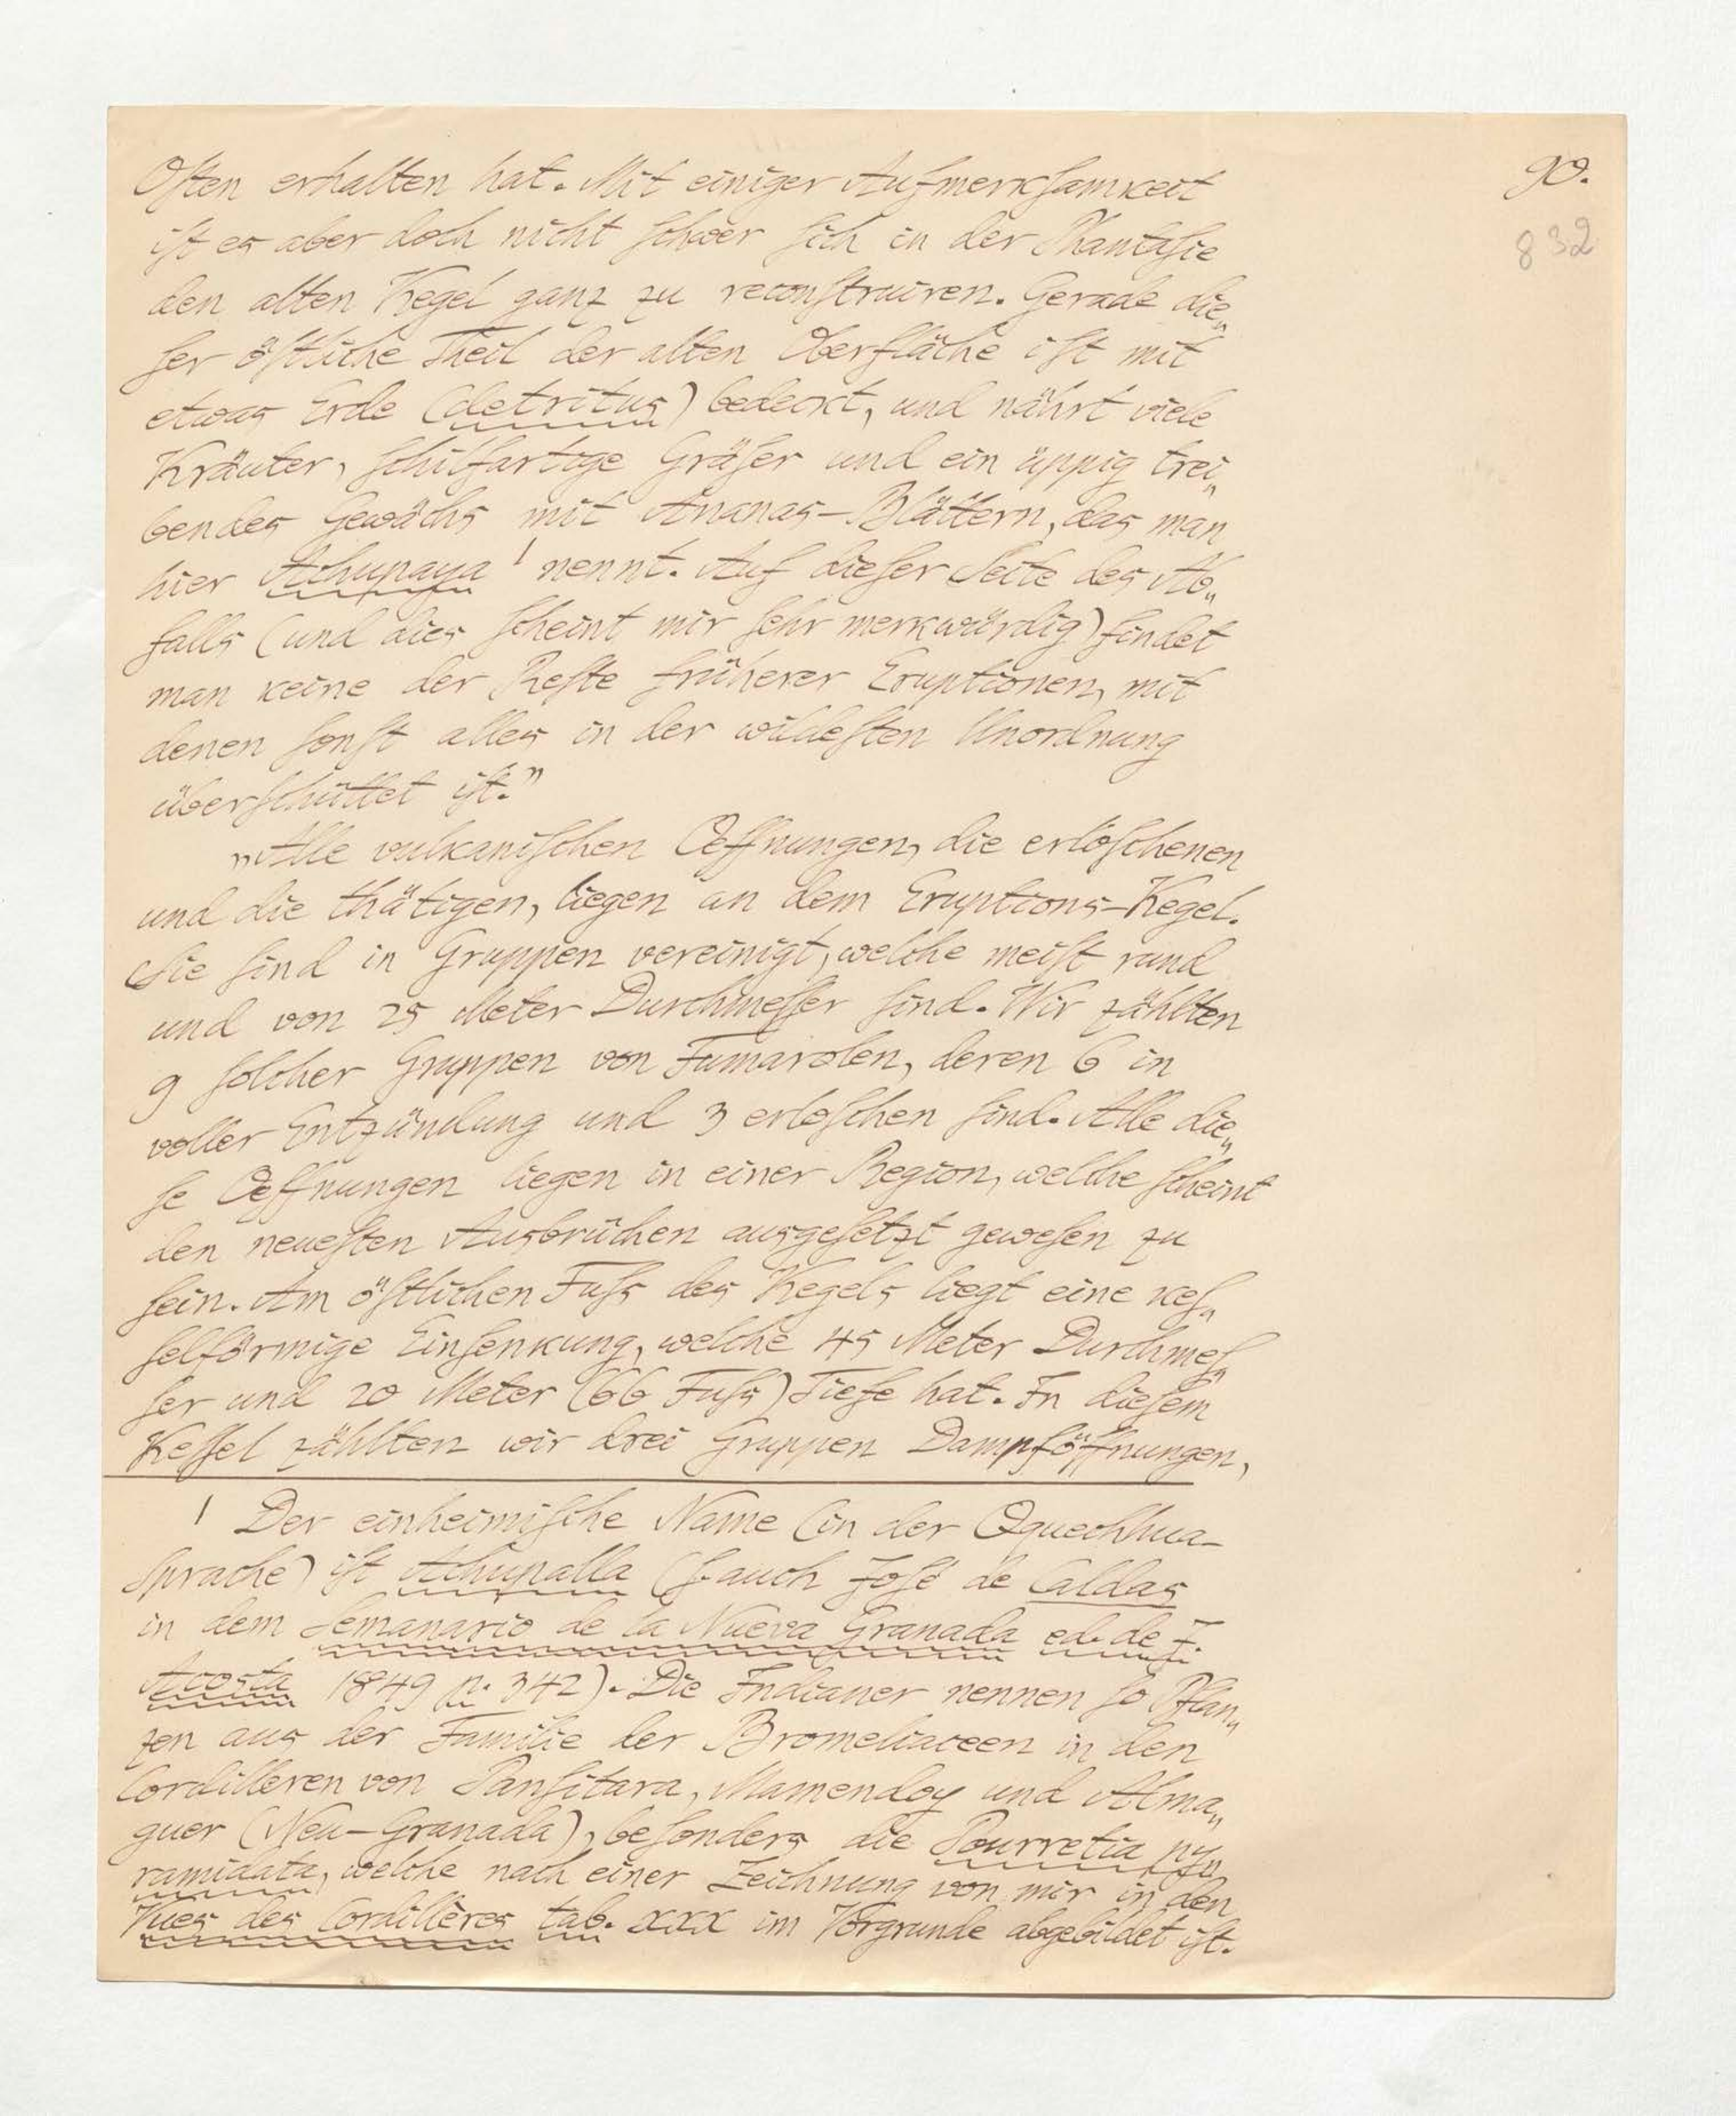 90.
832
Osten erhalten hat. Mit einiger Aufmerksamkeit
ist es aber doch nicht schwer sich in der Phantasie
den alten Kegel ganz zu reconstruiren. Gerade die„
ser östliche Theil der alten Oberfläche ist mit
etwas Erde (detritus) bedeckt, und nährt viele
Kräuter, schilfartige Gräser und ein üppig trei„
bendes Gewächs mit Ananas-Blättern, das man
hier Achupaya ¹ nennt. Auf dieser Seite des Ab„
falls (und dies scheint mir sehr merkwürdig) findet
man keine der Reste früherer Eruptionen, mit
denen sonst alles in der wildesten Unordnung
überschüttet ist.”
„Alle vulkanischen Oeffnungen, die erloschenen
und die thätigen, liegen an dem Eruptions-Kegel.
Sie sind in Gruppen vereinigt, welche meist rund
und von 25 Meter Durchmesser sind. Wir zählten
9 solcher Gruppen von Fumarolen, deren 6 in
voller Entzündung und 3 erloschen sind. Alle die„
se Oeffnungen liegen in einer Region, welche scheint
den neuesten Ausbrüchen ausgesetzt gewesen zu
sein. Am östlichen Fuss des Kegels liegt eine kes„
selförmige Einsenkung, welche 45 Meter Durchmes„
ser und 20 Meter (66 Fuss) Tiefe hat. In diesem
Kessel zählten wir drei Gruppen Dampföffnungen,
¹ Der einheimische Name (in der Qquechhua-
Sprache) ist Achupalla (s. auch José de Caldas
in dem Semanario de la Nueva Granada ed. de J.
Acosta 1849 p. 342). Die Indianer nennen so Pflan„
zen aus der Familie der Bromeliaceen in den
Cordilleren von Pansitara, Mamendoy und Alma„
guer (Neu-Granada), besonders die Pourretia py„
ramidata, welche nach einer Zeichnung von mir in den
Vues des Cordillères tab. XXX im Vorgrunde abgebildet ist.